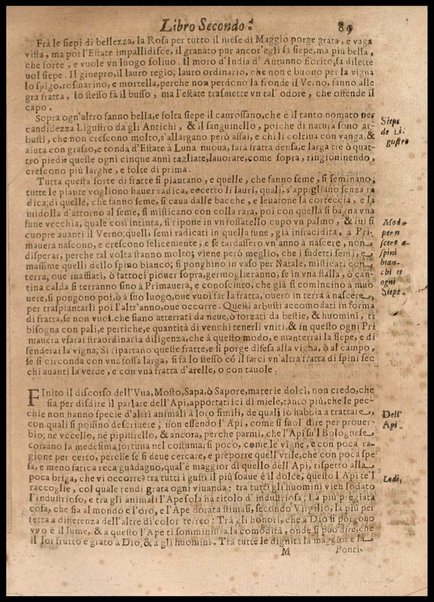 Libro Secondo. 89
Frà le siepi di bellezza, la Rosa per tutto il mese di Maggio porge grata, e vaga
vista, ma poi l'Estate impallidisce, il granato pur ancor'egli fa siepe, ma più bella,
che forte, e vuole vn luogo soliuo. Il moro d'India d'Autunno fiorito, fa diletteuol siepe. Il ginepro, il lauro regio; lauro ordinario, che non è buono per la vigna
lo spigo, rosmarino, e mortella, perche non perdono la fronde il Verno, fanno allegra fratta, lo stesso fà il busso, ma l'estate trasmette vn tal' odore, che offende il
capo.
Sopra ogn'altro fanno bella, e folta siepe il
candidezza Ligustro da gli Antichi, & il sanguinello, poiche di natura sono
busti, che non crescono molto, s' allargano però assai, e chi li coltiua con vanga, &
aiuta con grasso, e tonda d'Estate à Luna nuoua, farà fratta densa, e larga trè ò quattro piedi e queste ogni cinque anni tagliate, lauorate, come sopra, ringiouinendo,
crescono più larghe, e folte di prima.
Siepe
de i li-
gustro
Tutta questa sorte di fratte si piantano, e quelle, che fanno seme, si seminano,
tutte le piante vogliono hauer radica, eccetto li lauri, quali, s'appigliano senza radica; di quelle, che fanno seme, si caua dalle bacche, e leuatone la corteccia, e la
midolla d'attorno al seme, si mischiano con colla rara, poi con quella si bagna vna
fune vecchia, quale così intinta, si ripone in vn solco cupo vn palmo, & iui si
cuopre auanti il Verno, quelli semi radicati in quella fune, già infracidita, à Primauera nascono, e crescono felicemente, e se tardassero vn anno à nascere, non
disperar, perche tal volta stanno molto; viene però meglio, che i sudetti semi,
massime quelli dello spino bianco, si ponghino in vaso per Natale, mischiati con
terra, oue inaffiati, ò fattoli piouer sopra, germoglieranno, se in vna stalla, ò cantina calda si terranno sino à Primauera, e conosciuto, che già si cominciano a mouere, si pongono poi, ò à suo luogo, oue vuoi far la fratta, ouero in terra à nascere,
per traspiantarli poi l'altr'anno, oue occorre. Questi arbusti accomodati in forma
di fratta, se non vuoi, che siano atterrati da neue, ò forzati da bestie, & huomini, ti
bisogna con pali, e pertiche, e quantità di venchi tenerli vniti, & in questo ogni Primauera vsarai straordinaria diligenza, che à questo modo, e manterrai la siepe, e difenderai la vigna. Si ripartano queste fratte, e si porge difesa alla vigna, ò al campo,
se si circonda con vna fossa larga, si fa lo stesso cō il farci vn'altra fratta di spini secchi auanti la verde, e con vna fratta d'arelle, o con tauole.
Modo
per il
seme
spini
bian-
chi et
ogni
Siepe.
FInito il discorso dell' Vua, Mosto, Sapa, ò Sapore, materie dolci, non credo, che
sia per disdire il parlare dell' Api apportatrici di miele, tanto più, che le pecchie non hanno specie d'altri animali à loro simili, de quali io habbia à trattare,
con quali si possino descriuere, non essendo l'Api, come si suol dire per prouerbio, nè vccello, nè pipistrello, & ancora, perche parmi, che l' Api su'l Bolognese
corrano la medesima fortuna nel costume, si poco, come le vigne, e con poca ragione per certo, perche se si deue cercare, e preporre quell'vtile, che con poca spesa, e meno fatica reca guadagno, qual'è maggior di quello dell'Api, rispetto alla
poca briga, che vi occorre? tra tutti i gusti il più soaue è il dolce, questo l'Api te'l
raccoglie, col quale rendi grata ogni viuanda: tra tutti gli huomini vien lodato
l'industrioso, e tra gli animali l'Ape sola hà titolo d'industriosa; La più pregiata
cosa, che sia al mondo è l'oro, e l'Ape dorata stimasi, secondo Virgilio, la più perfetta à differenza dell'altre di color terreo: Trà gli honori, che à Dio si porgono
vno è il lume, & à questo l'Api ti somministra la comodità, onde si può dire, che
il lor frutto è grato à Dio, & à gli huomini. Tra tutte le dignità la maggiore la
Dell'
Api.
Lodi,
M Ponti-